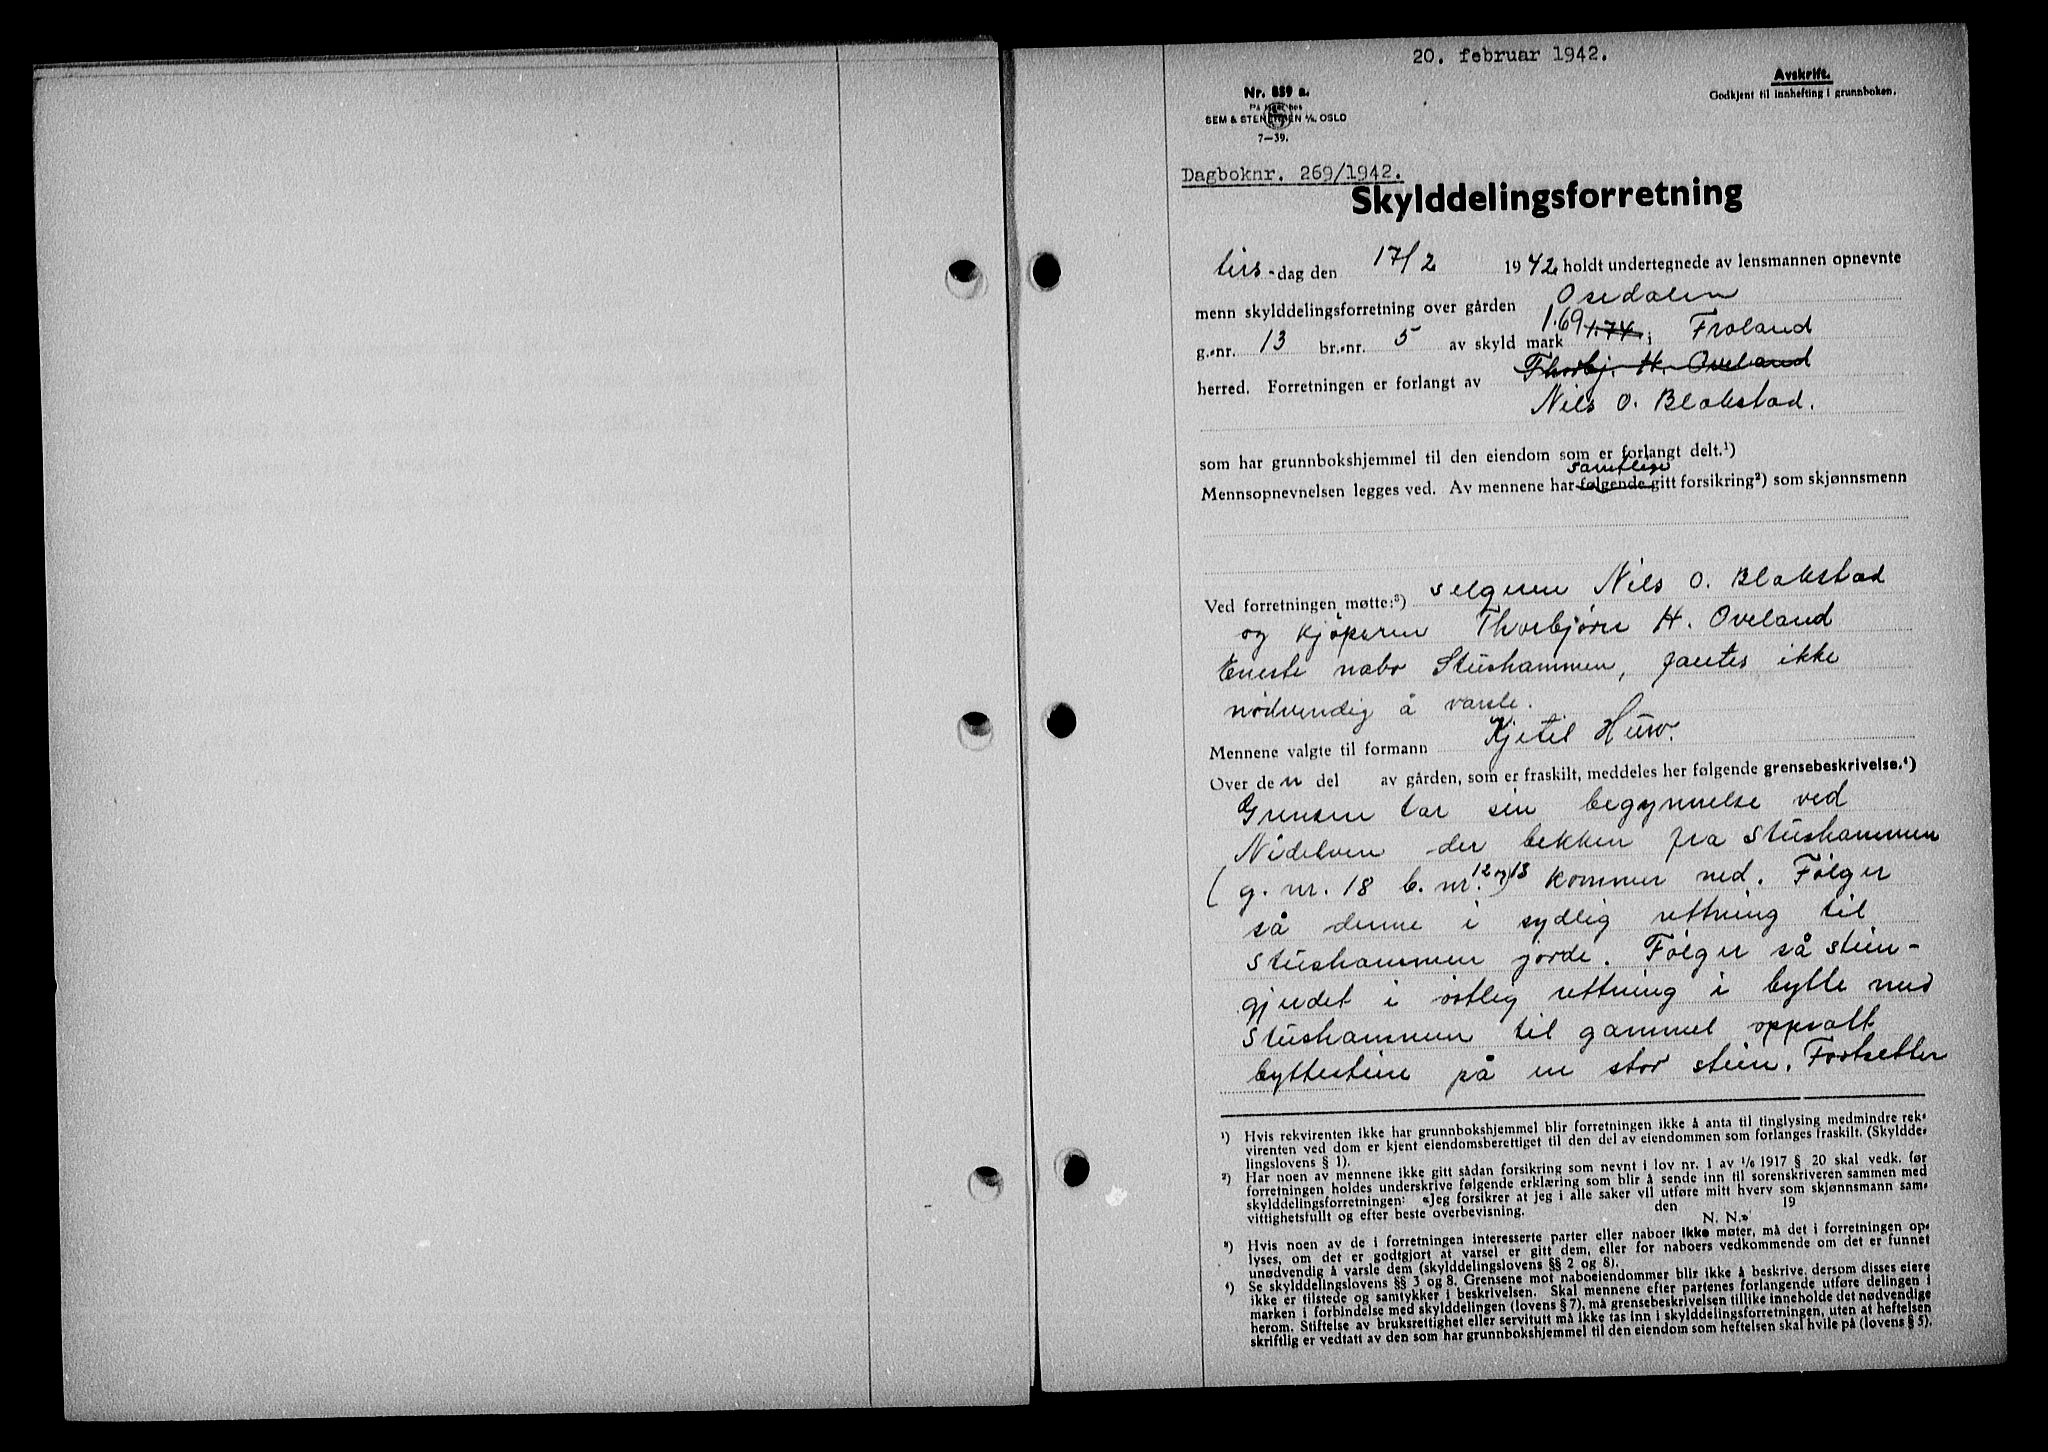 20. februar 1942.
Avskrift.
Godkjent til innhefting i grunnboken.
Nr. 859 a.
På lager hos
SEM & STENERSEN A/S, OSLO
7—39.
Dagboknr. 269/1942.
Skylddelingsforretning
tirs-dag den 17/2 1942 holdt undertegnede av lensmannen opnevnte
menn skylddelingsforretning over gården Osedalen
g.-nr. 13 br.-nr. 5 av skyld mark 1.69 1.74, i Froland
herred. Forretningen er forlangt av Thorbj. H. Oveland
Nils O. Blakstad.
som har grunnbokshjemmel til den eiendom som er forlangt delt.¹)
samtlige
Mennsopnevnelsen legges ved. Av mennene har følgende gitt forsikring²) som skjønnsmenn
Ved forretningen møtte:³) selgeren Nils O. Blakstad
og kjøperen Thorbjørn H. Oveland
Eneste nabo Stushammen, fantes ikke
nødvendig å varsle.
Mennene valgte til formann Kjetil Huso.
Over den del av gården, som er fraskilt, meddeles her følgende grensebeskrivelse.⁴)
Grensen tar sin begynnelse ved
Nidelven der bekken fra Stushammen
(g. nr. 18 b. nr. 12 og 13 kommer ned. Følger
så denne i sydlig rettning til
Stushammen jorde. Følger så stein-
gjerdet i østlig rettning i bytte med
Stushammen til gammel oppsatt
byttestein på en stor stein. Fortsetter
¹) Hvis rekvirenten ikke har grunnbokshjemmel blir forretningen ikke å anta til tinglysing medmindre rek-
virenten ved dom er kjent eiendomsberettiget til den del av eiendommen som forlanges fraskilt. (Skyldde-
lingslovens § 1).
²) Har noen av mennene ikke gitt sådan forsikring som nevnt i lov nr. 1 av 1/6 1917 § 20 skal vedk. før
forretningen holdes underskrive følgende erklæring som blir å sende inn til sorenskriveren sammen med
skylddelingsforretningen: «Jeg forsikrer at jeg i alle saker vil utføre mitt hverv som skjønnsmann sam-
vittighetsfullt og efter beste overbevisning. den 19
N. N.»
³) Hvis noen av de i forretningen interesserte parter eller naboer ikke møter, må det i forretningen op-
lyses, om det er godtgjort at varsel er gitt dem, eller for naboers vedkommende om det er funnet
unødvendig å varsle dem (skylddelingslovens §§ 2 og 8).
⁴) Se skylddelingslovens §§ 3 og 8. Grensene mot naboeiendommer blir ikke å beskrive, dersom disses eiere
ikke er tilstede og samtykker i beskrivelsen. Skal mennene efter partenes forlangende utføre delingen i
marken i forbindelse med skylddelingen (lovens § 7), må grensebeskrivelsen tillike inneholde det nødvendige
herom. Stiftelse av bruksrettighet eller servitutt må ikke tas inn i skylddelingsforretningen, uten at heftelsen
skriftlig er vedtatt av den som har grunnbokshjemmel til den eiendom som heftelsen skal hvile på (lovens § 5).